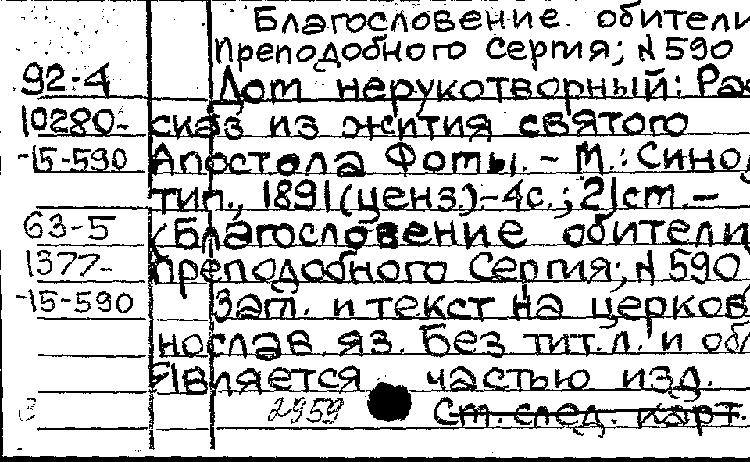 Благословение обители
Преподобного Сергия; № 590
92-4 Дом нерукотворный: Рас
10280- сказ из жития святого
-15-590 Апостола Фомы. - М.: Синод
тип., 1891 (ценз). - 4с.; 21см. -
63-5 (Благословение обители
1377- Преподобного Сергия; № 590
-15-590 Заг. и текст на церков
нослав. яз. Без тит. л. и обл
Является частью изд.
2959 См. след. карт.